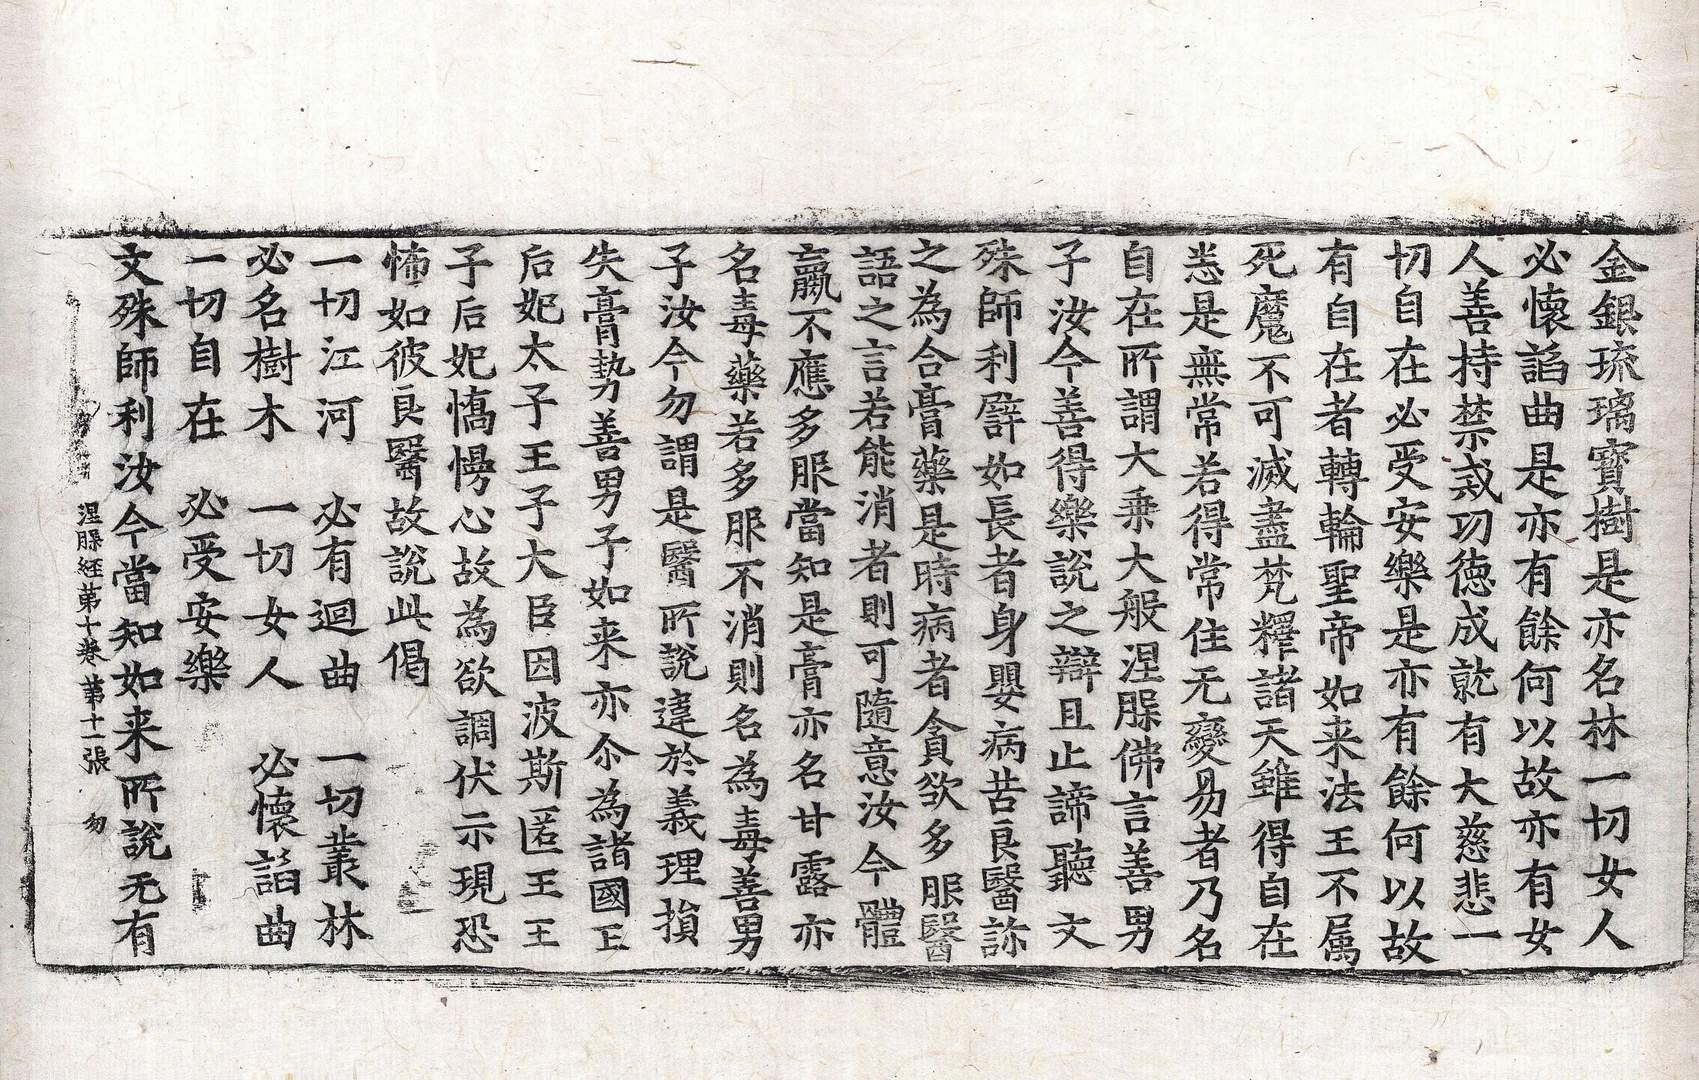 金銀琉璃寶樹是亦名林一切女人
必懷諂曲是亦有餘何以故亦有女
人善持禁戒功德成就有大慈悲一
切自在必受安樂是亦有餘何以故
有自在者轉輪聖帝如来法王不属
死魔不可滅盡梵釋諸天雖得自在
悉是無常若得常住无變易者乃名
自在所謂大乗大般涅槃佛言善男
子汝今善得樂說之辯且止諦聽文
殊師利譬如長者身嬰病苦良醫診
之為合膏藥是時病者貪欲多服醫
語之言若能消者則可隨意汝今體
羸不應多服當知是膏亦名甘露亦
名毒藥若多服不消則名為毒善男
子汝今勿謂是醫所說違於義理損
失膏勢善男子如来亦尒為諸國王
后妃太子王子大臣因波斯匿王王
子后妃憍慢心故為欲調伏示現恐
怖如彼良醫故說此偈
一切江河　必有迴曲　一切叢林
必名樹木　一切女人　必懷諂曲
一切自在　必受安樂
文殊師利汝今當知如来所說无有
涅槃経第十卷　第十一張　勿